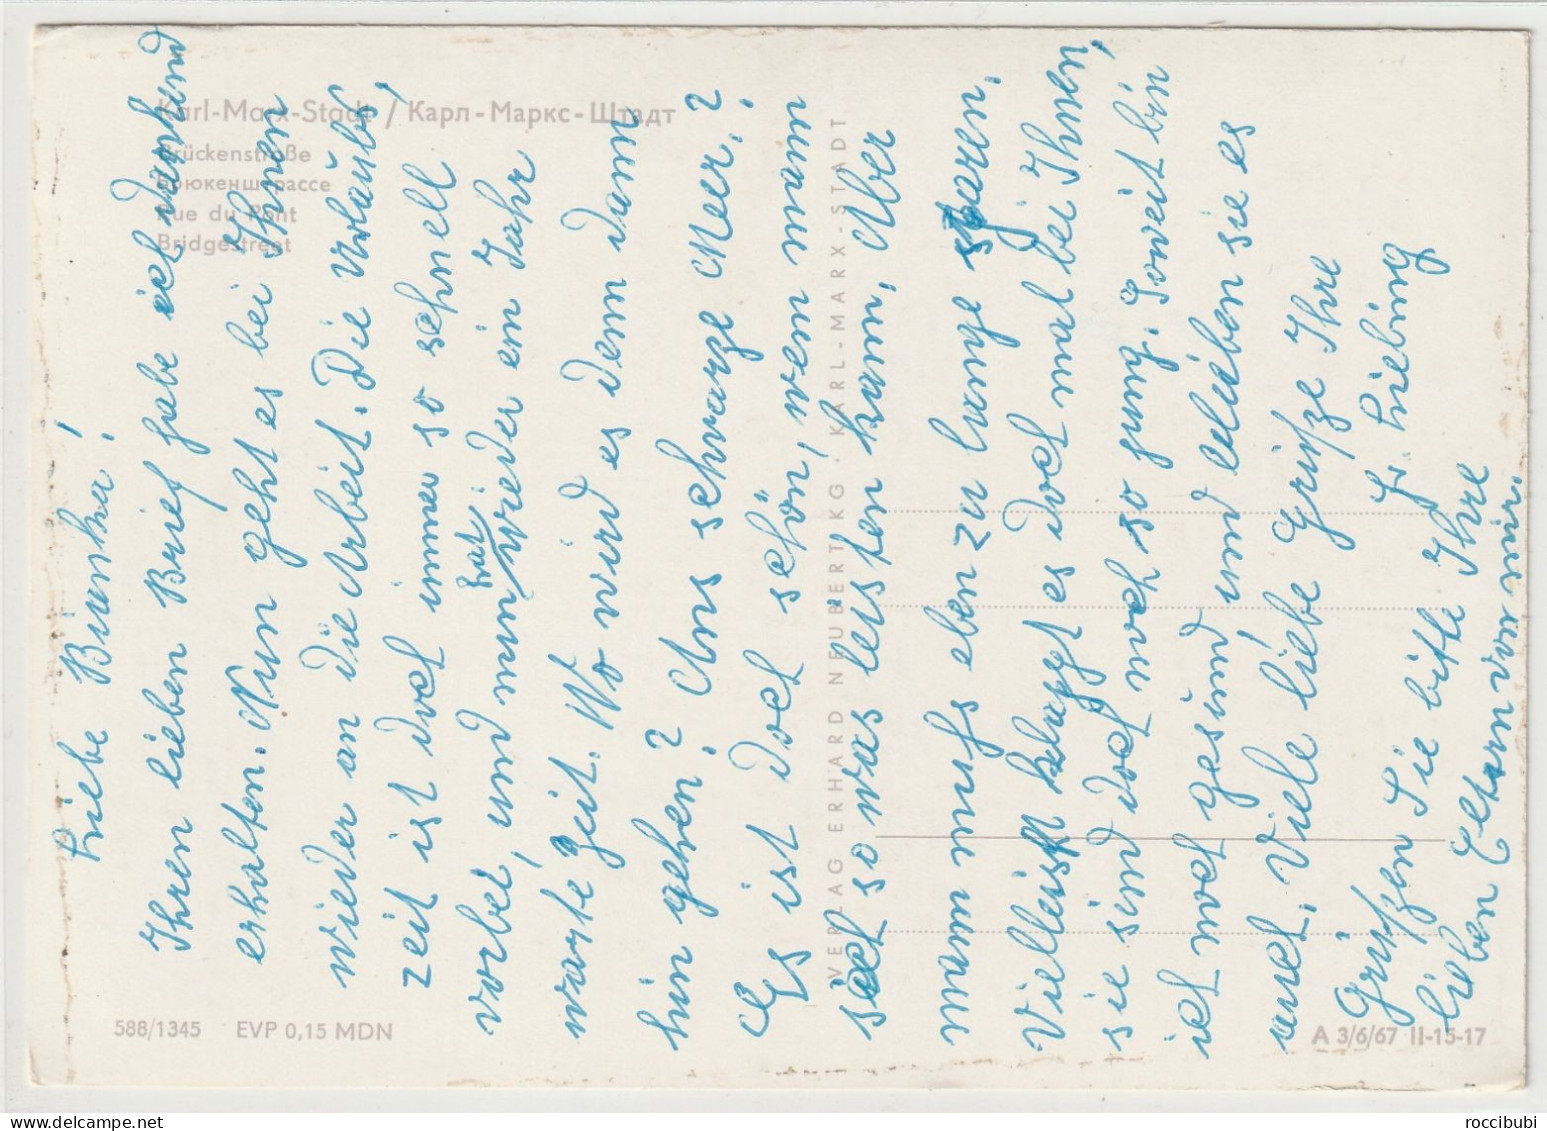 Karl-Marx-Stadt / Карл-Маркс-Штадт
Brückenstraße
Брюкенштрассе
Rue du Pont
Bridgestreet
Liebe Bianka!
Ihren lieben Brief habe ich dankend
erhalten. Nun geht es bei Ihnen
wieder an die Arbeit. Die Urlaubs,
zeit ist doch immer so schnell
vorbei, und nun hat wieder ein Jahr
warte Zeit. Wo wird es denn dann
hin gehen? Ans schwarze Meer.?
Es ist doch schön, wenn mann
sich so was leisten kann, Aber
mann muß eben zu lange sparen.
Vielleicht klappt es doch mal bei Ihnen,
sie sind doch noch so jung. Soweit bin
ich noch gesund und bleiben sie es
auch. Viele liebe Grüße Ihre
Liebing
Grüßen Sie bitte Ihre
lieben Eltern von mir.
VERLAG ERHARD NEUBERT KG · KARL-MARX-STADT
588/1345 EVP 0,15 MDN
A 3/6/67 II-15-17
roccibubi